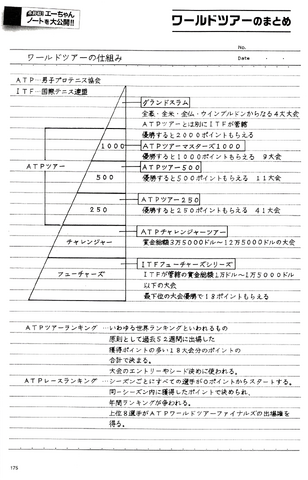 エーちゃん
ノートを大公開!!
ワールドツアーのまとめ
No.
Date
ワールドツアーの仕組み
ATP…男子プロテニス協会
ITF…国際テニス連盟
グランドスラム
全豪・全米・全仏・ウインブルドンからなる4大大会
ATPツアーとは別にITFが管轄
優勝すると2000ポイントもらえる
1000
ATPツアーマスターズ1000
優勝すると1000ポイントもらえる 9大会
ATPツアー
500
ATPツアー500
優勝すると500ポイントもらえる 11大会
250
ATPツアー250
優勝すると250ポイントもらえる 41大会
チャレンジャー
ATPチャレンジャーツアー
賞金総額3万5000ドル〜12万5000ドルの大会
フューチャーズ
ITFフューチャーズシリーズ
ITFが管轄の賞金総額1万ドル〜1万5000ドル
以下の大会
最下位の大会優勝で18ポイントもらえる
ATPツアーランキング …いわゆる世界ランキングといわれるもの
原則として過去52週間に出場した
獲得ポイントの多い18大会分のポイントの
合計で決まる。
大会のエントリーやシード決めに使われる。
ATPレースランキング …シーズンごとにすべての選手が0ポイントからスタートする。
同一シーズン内に獲得したポイントで決められ、
年間ランキングが争われる。
上位8選手がATPワールドツアーファイナルズの出場権を
得る。
176